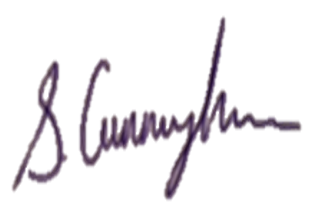 S Cunningham